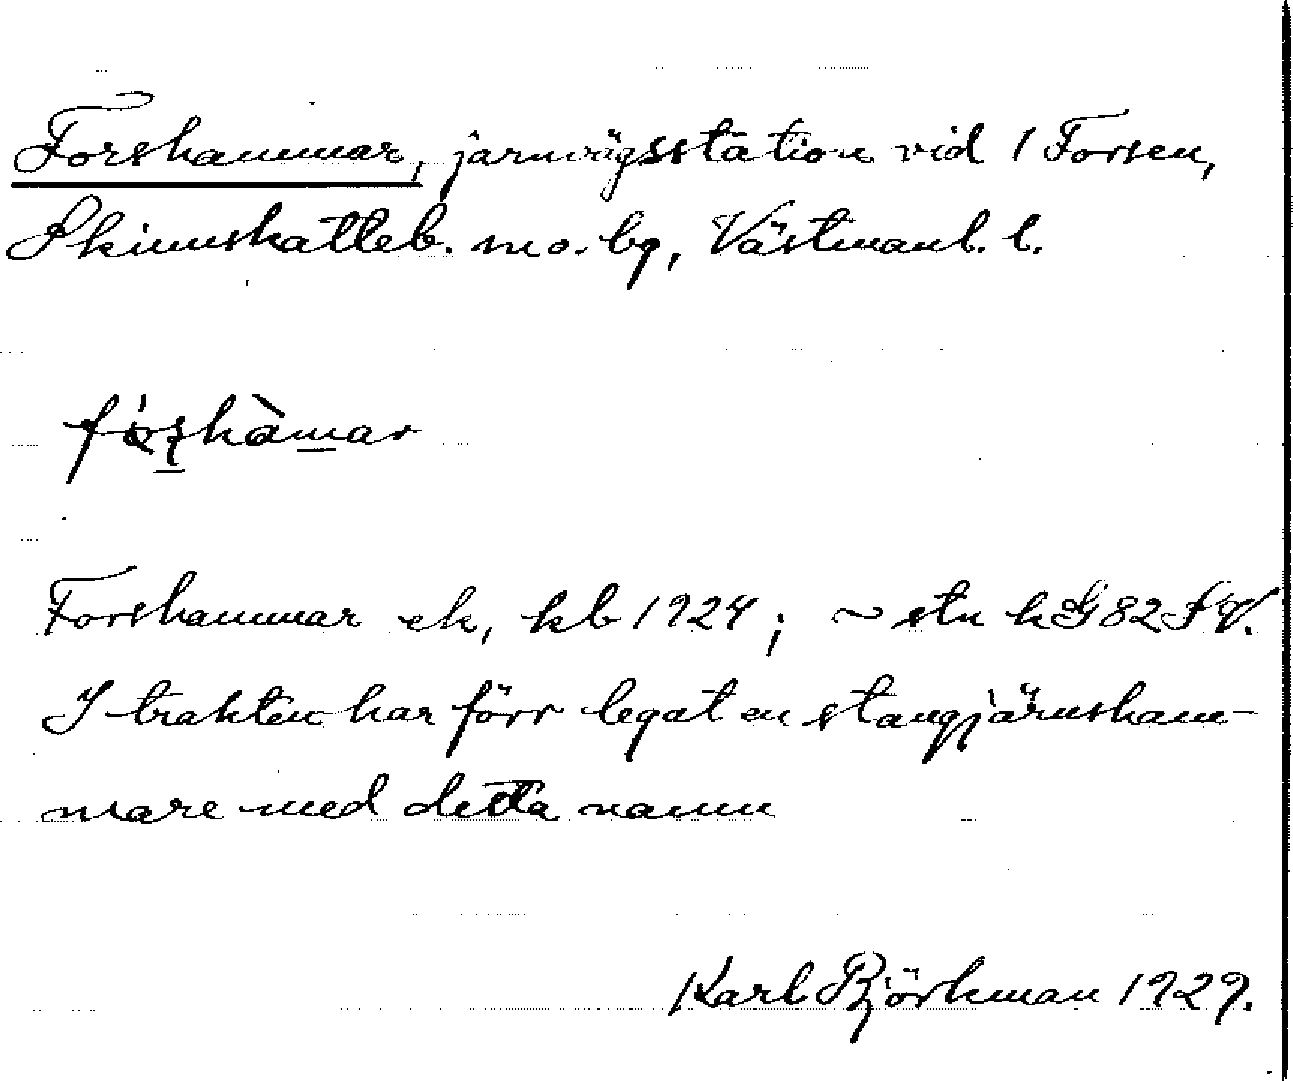 Forshammar, järnvägsstation vid 1 Forsen,
Skinnskatteb. sn o. bg, Västmanl. l.
fórshàmar
Forshammar ek, kb 1924; ~ stn kG82SV.
I trakten har förr legat en stangjärnsham-
mare med detta namn
Karl Björkman 1929.